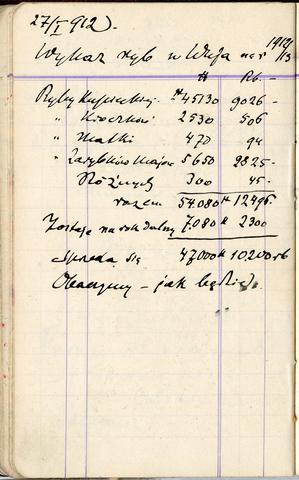 27/I 912).
Wykaz ryb u Wuja na r 1912/13
# Rb. -
Ryby kupieckiej # 45130 9026 -
" Kroczków 2530 506
" Matki 470 94
" Zarybków 5650 2825 -
Różnych 300 45 -
razem 54.080 # 12496
Zostaje na rok dalszy 7.080 # 2300
Sprzeda się 47000 # 10.200 rb
Obaczymy - jak będzie.